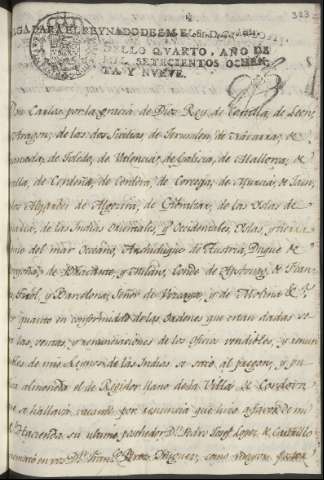 323
PARA EL REYNADO DE
SELLO QVARTO, AÑO DE
SETECIENTOS OCHEN
TA Y NVEVE.
Don Carlos por la gracia de Dios, Rey de Castilla, de Leon,
Aragon, de las dos Sicilias de Jerusalen, de Navarra, de
Granada, de Toledo, de Valencia, de Galicia, de Mallorca, de
Sevilla, de Cerdeña, de Cordova, de Corcega, de Murcia, de Jaen,
los Algarves de Algecira, de Gibraltar, de las Yslas de
Canaria, de las Indias Orientales, y Occidentales, Yslas, y tierra
firme del mar Oceano, Archiduque de Austria, Duque de
Borgoña, de Bravante, y Milan, Conde de Abspurg, de Flan
des, Tirol, y Barcelona, Señor de Vizcaya, y de Molina &c.
Por quanto en conformidad de las ordenes que estan dadas so
bre las ventas, y renunciaciones de los oficios vendibles, y renun
ciables de mis Reynos de las Indias se sacó al pregon, y pu
blica almoneda el de Regidor llano de la Villa de Cordova,
que se hallava vacante por renuncia que hizo a favor de mi
Rl. Hacienda su ultimo posehedor Dn. Pedro Josef Lopez de
remató en Dn. Franco. Perez como mayor postor